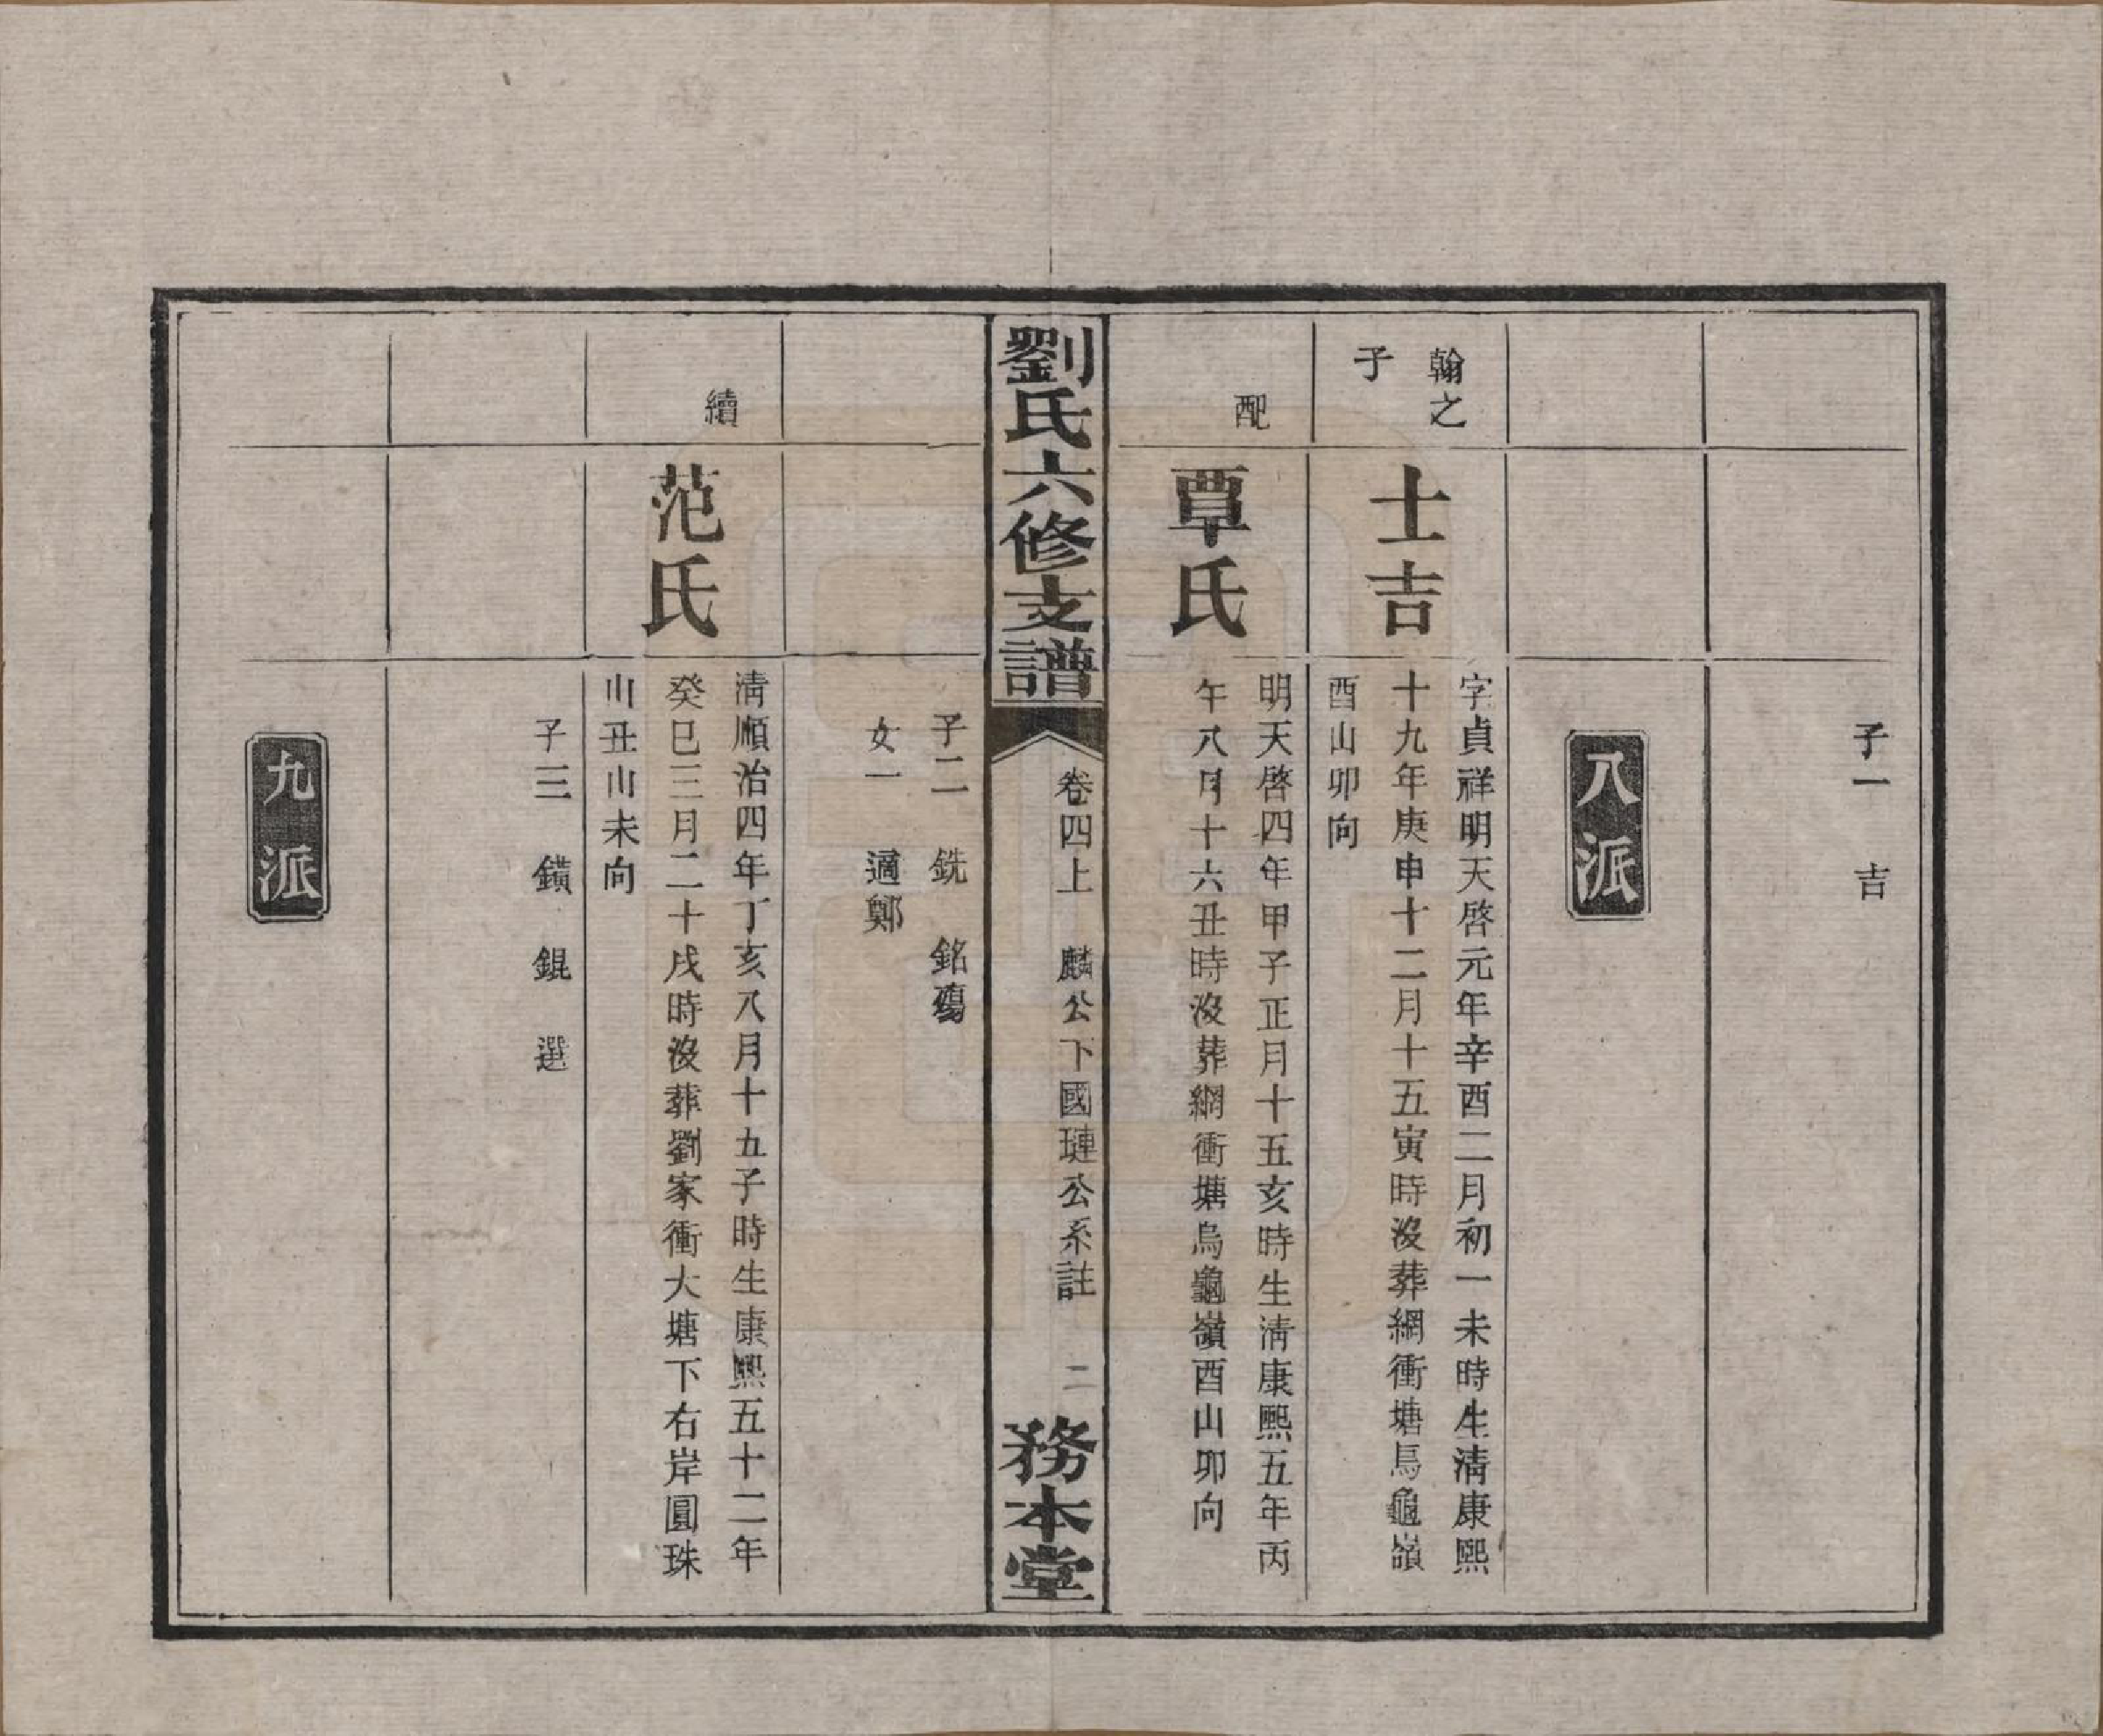 子一 吉
八派
翰之
子
士吉
字貞祥明天啓元年辛酉二月初一未時生淸康熙
十九年庚申十二月十五寅時沒葬網衝塘烏龜嶺
酉山卯向
配
覃氏
明天啓四年甲子正月十五亥時生淸康熙五年丙
午八月十六丑時沒葬網衝塘烏龜嶺酉山卯向
劉氏六修支譜
卷四上 麟公下國璉公系註 二
務本堂
子二 銑 銘殤
女一 適鄭
續
范氏
淸順治四年丁亥八月十五子時生康熙五十二年
癸巳三月二十戌時沒葬劉家衝大塘下右岸圓珠
山丑山未向
子三 鐄 錕 選
九派